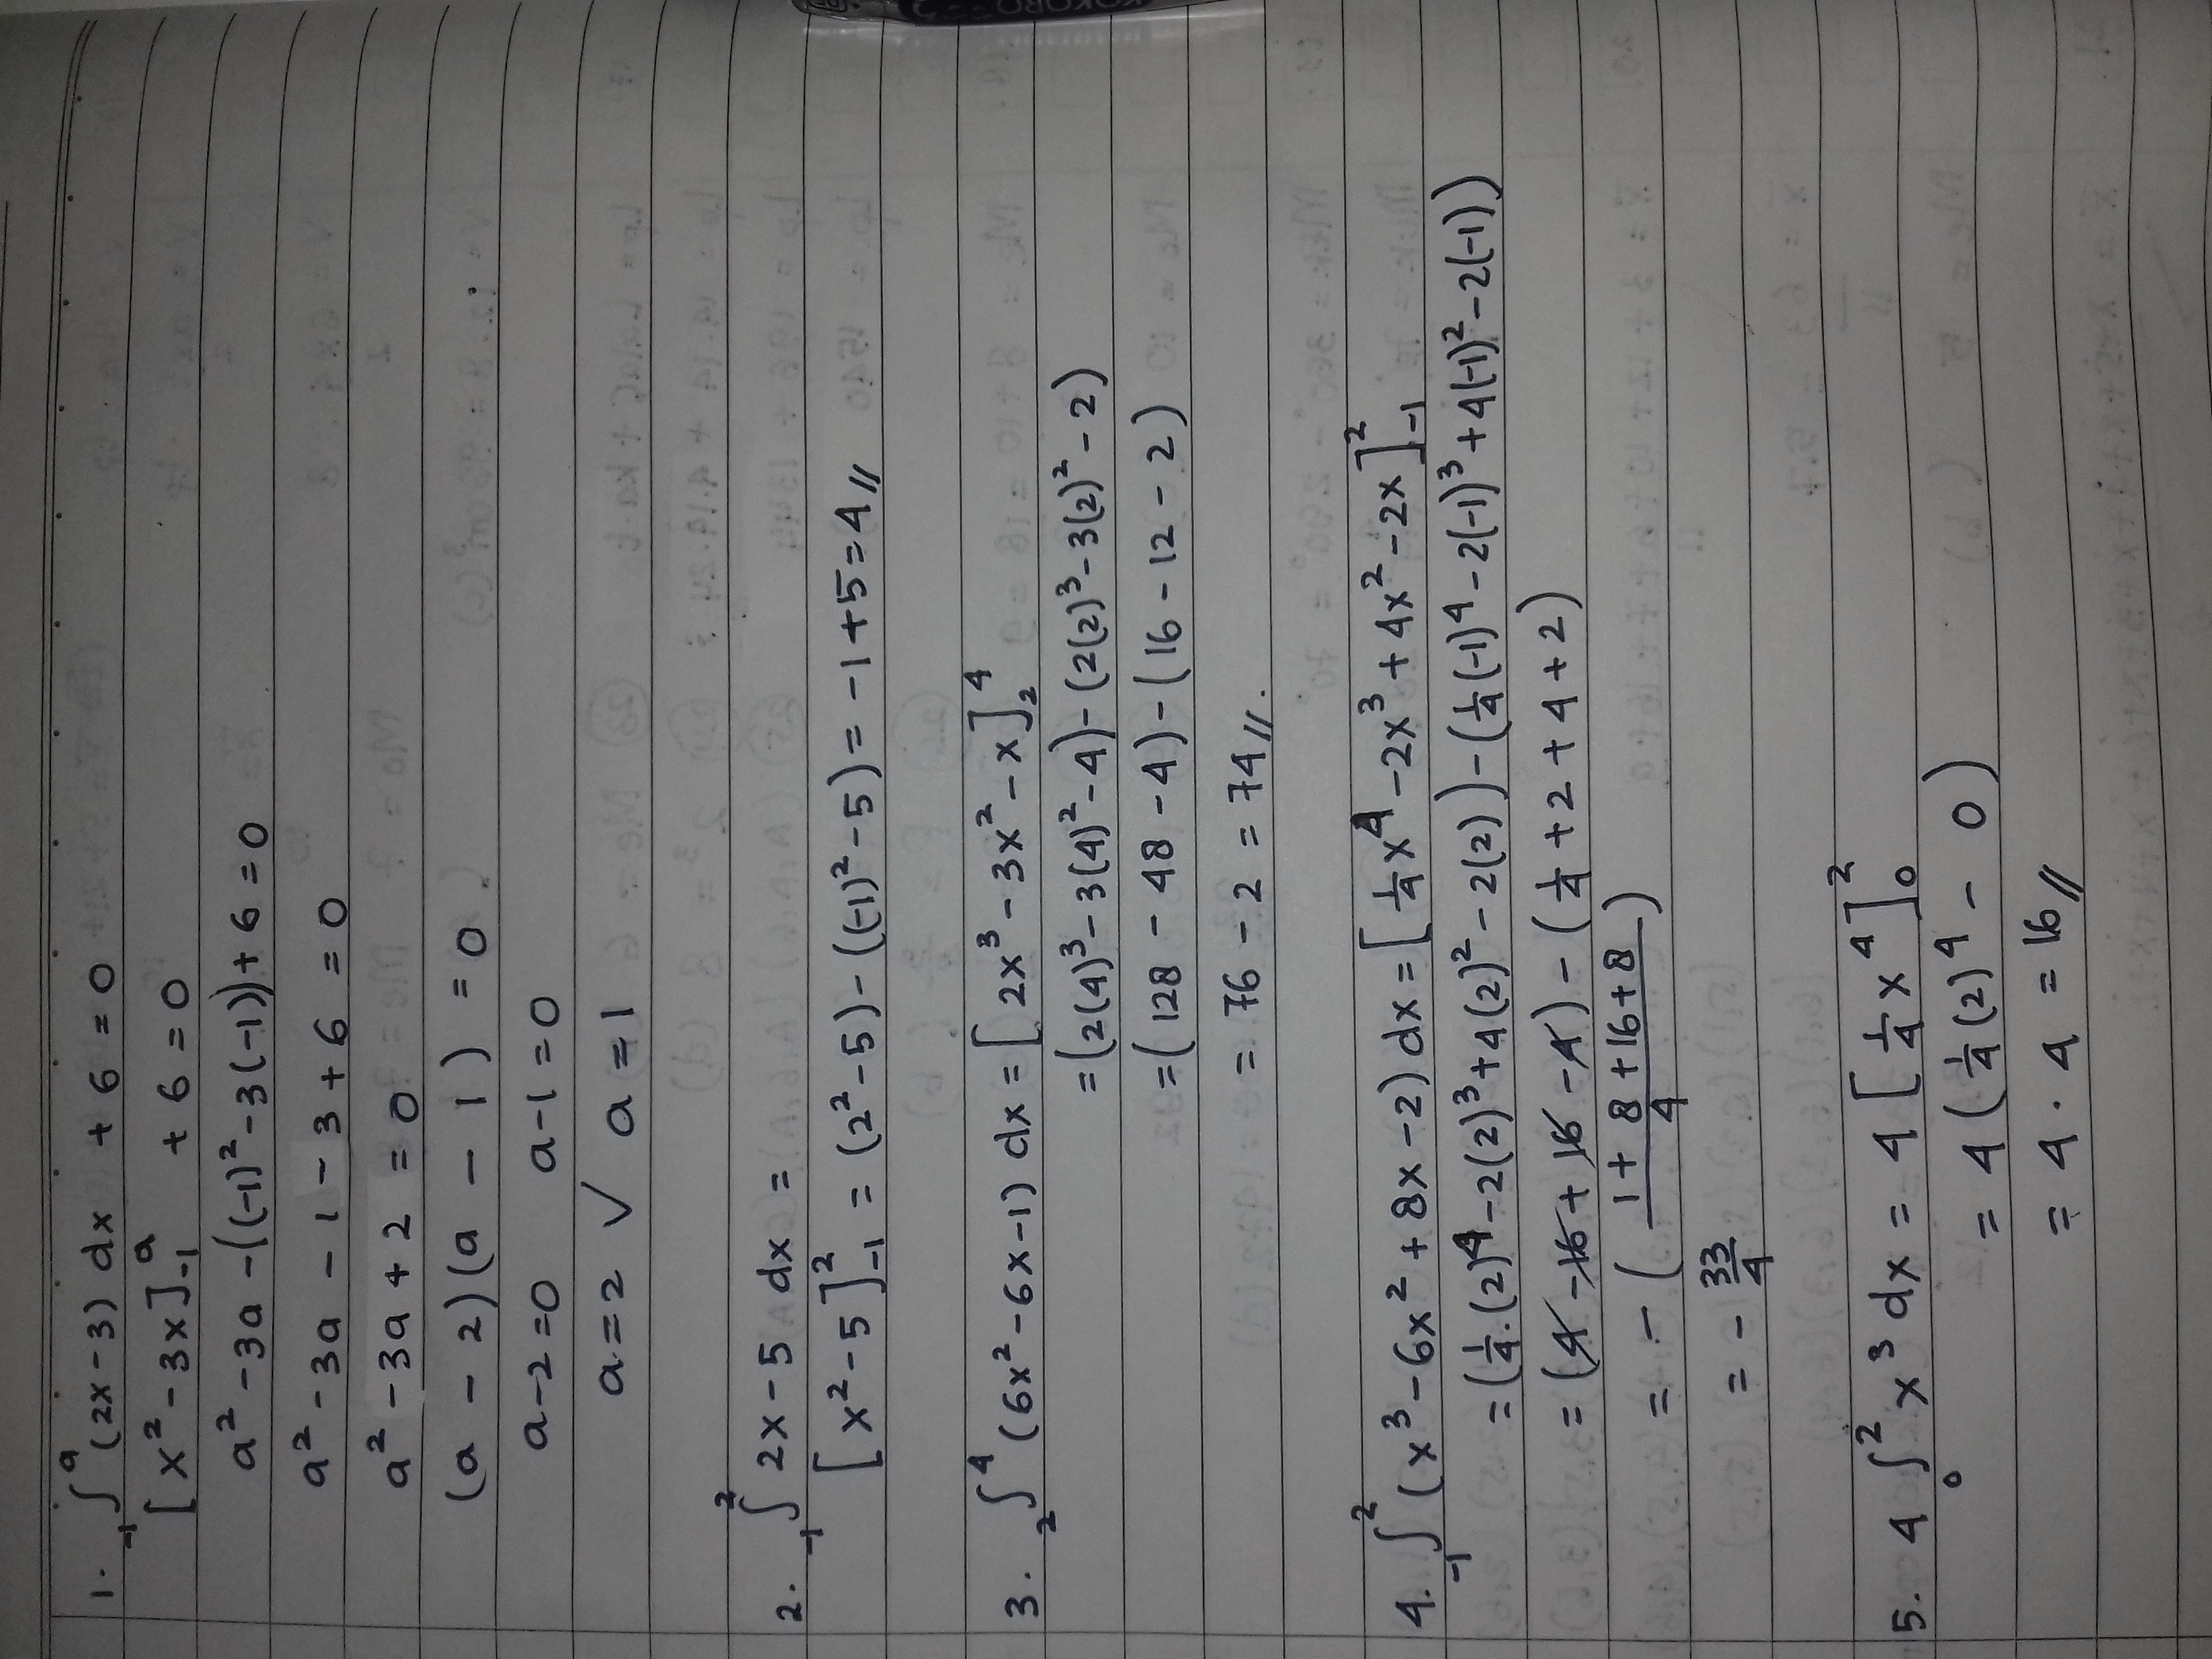 1. ₋₁∫ᵃ (2x-3) dx + 6 = 0
[x² - 3x]₋₁ᵃ + 6 = 0
a² - 3a - ((-1)² - 3(-1)) + 6 = 0
a² - 3a - 1 - 3 + 6 = 0
a² - 3a + 2 = 0
(a - 2)(a - 1) = 0
a-2=0 a-1=0
a=2 √ a=1
2. ₋₁∫² 2x-5 dx =
[x²-5]₋₁² = (2²-5) - ((-1)²-5) = -1+5=4//
3. ₂∫⁴ (6x²-6x-1) dx = [2x³ - 3x² - x]₂⁴
= (2(4)³ - 3(4)² - 4) - (2(2)³ - 3(2)² - 2)
= (128 - 48 - 4) - (16 - 12 - 2)
= 76 - 2 = 74//.
4. ₋₁∫² (x³ - 6x² + 8x - 2) dx = [1/4 x⁴ - 2x³ + 4x² - 2x]₋₁²
= (1/4 . (2)⁴ - 2(2)³ + 4(2)² - 2(2)) - (1/4 (-1)⁴ - 2(-1)³ + 4(-1)² - 2(-1))
= (4 - 16 + 16 - 4) - (1/4 + 2 + 4 + 2)
= - (1 + 8 + 16 + 8 / 4)
= - 33/4
5. 4 ₀∫² x³ dx = 4 [1/4 x⁴]₀²
= 4 (1/4 (2)⁴ - 0)
= 4 . 4 = 16//